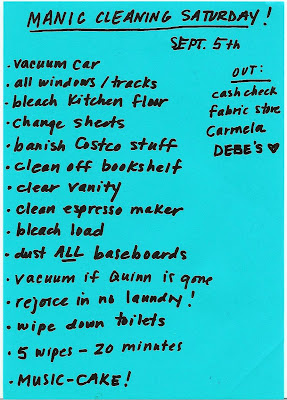 MANIC CLEANING SATURDAY!
SEPT. 5th
• vacuum car
• all windows/tracks
• bleach kitchen floor
• change sheets
• banish Costco stuff
• clean off bookshelf
• clear vanity
• clean espresso maker
• bleach load
• dust ALL baseboards
• vacuum if Quinn is gone
• rejoice in no laundry!
• wipe down toilets
• 5 wipes – 20 minutes
• MUSIC-CAKE!
OUT:
cash check
fabric store
Carmela
DEBE'S ♥